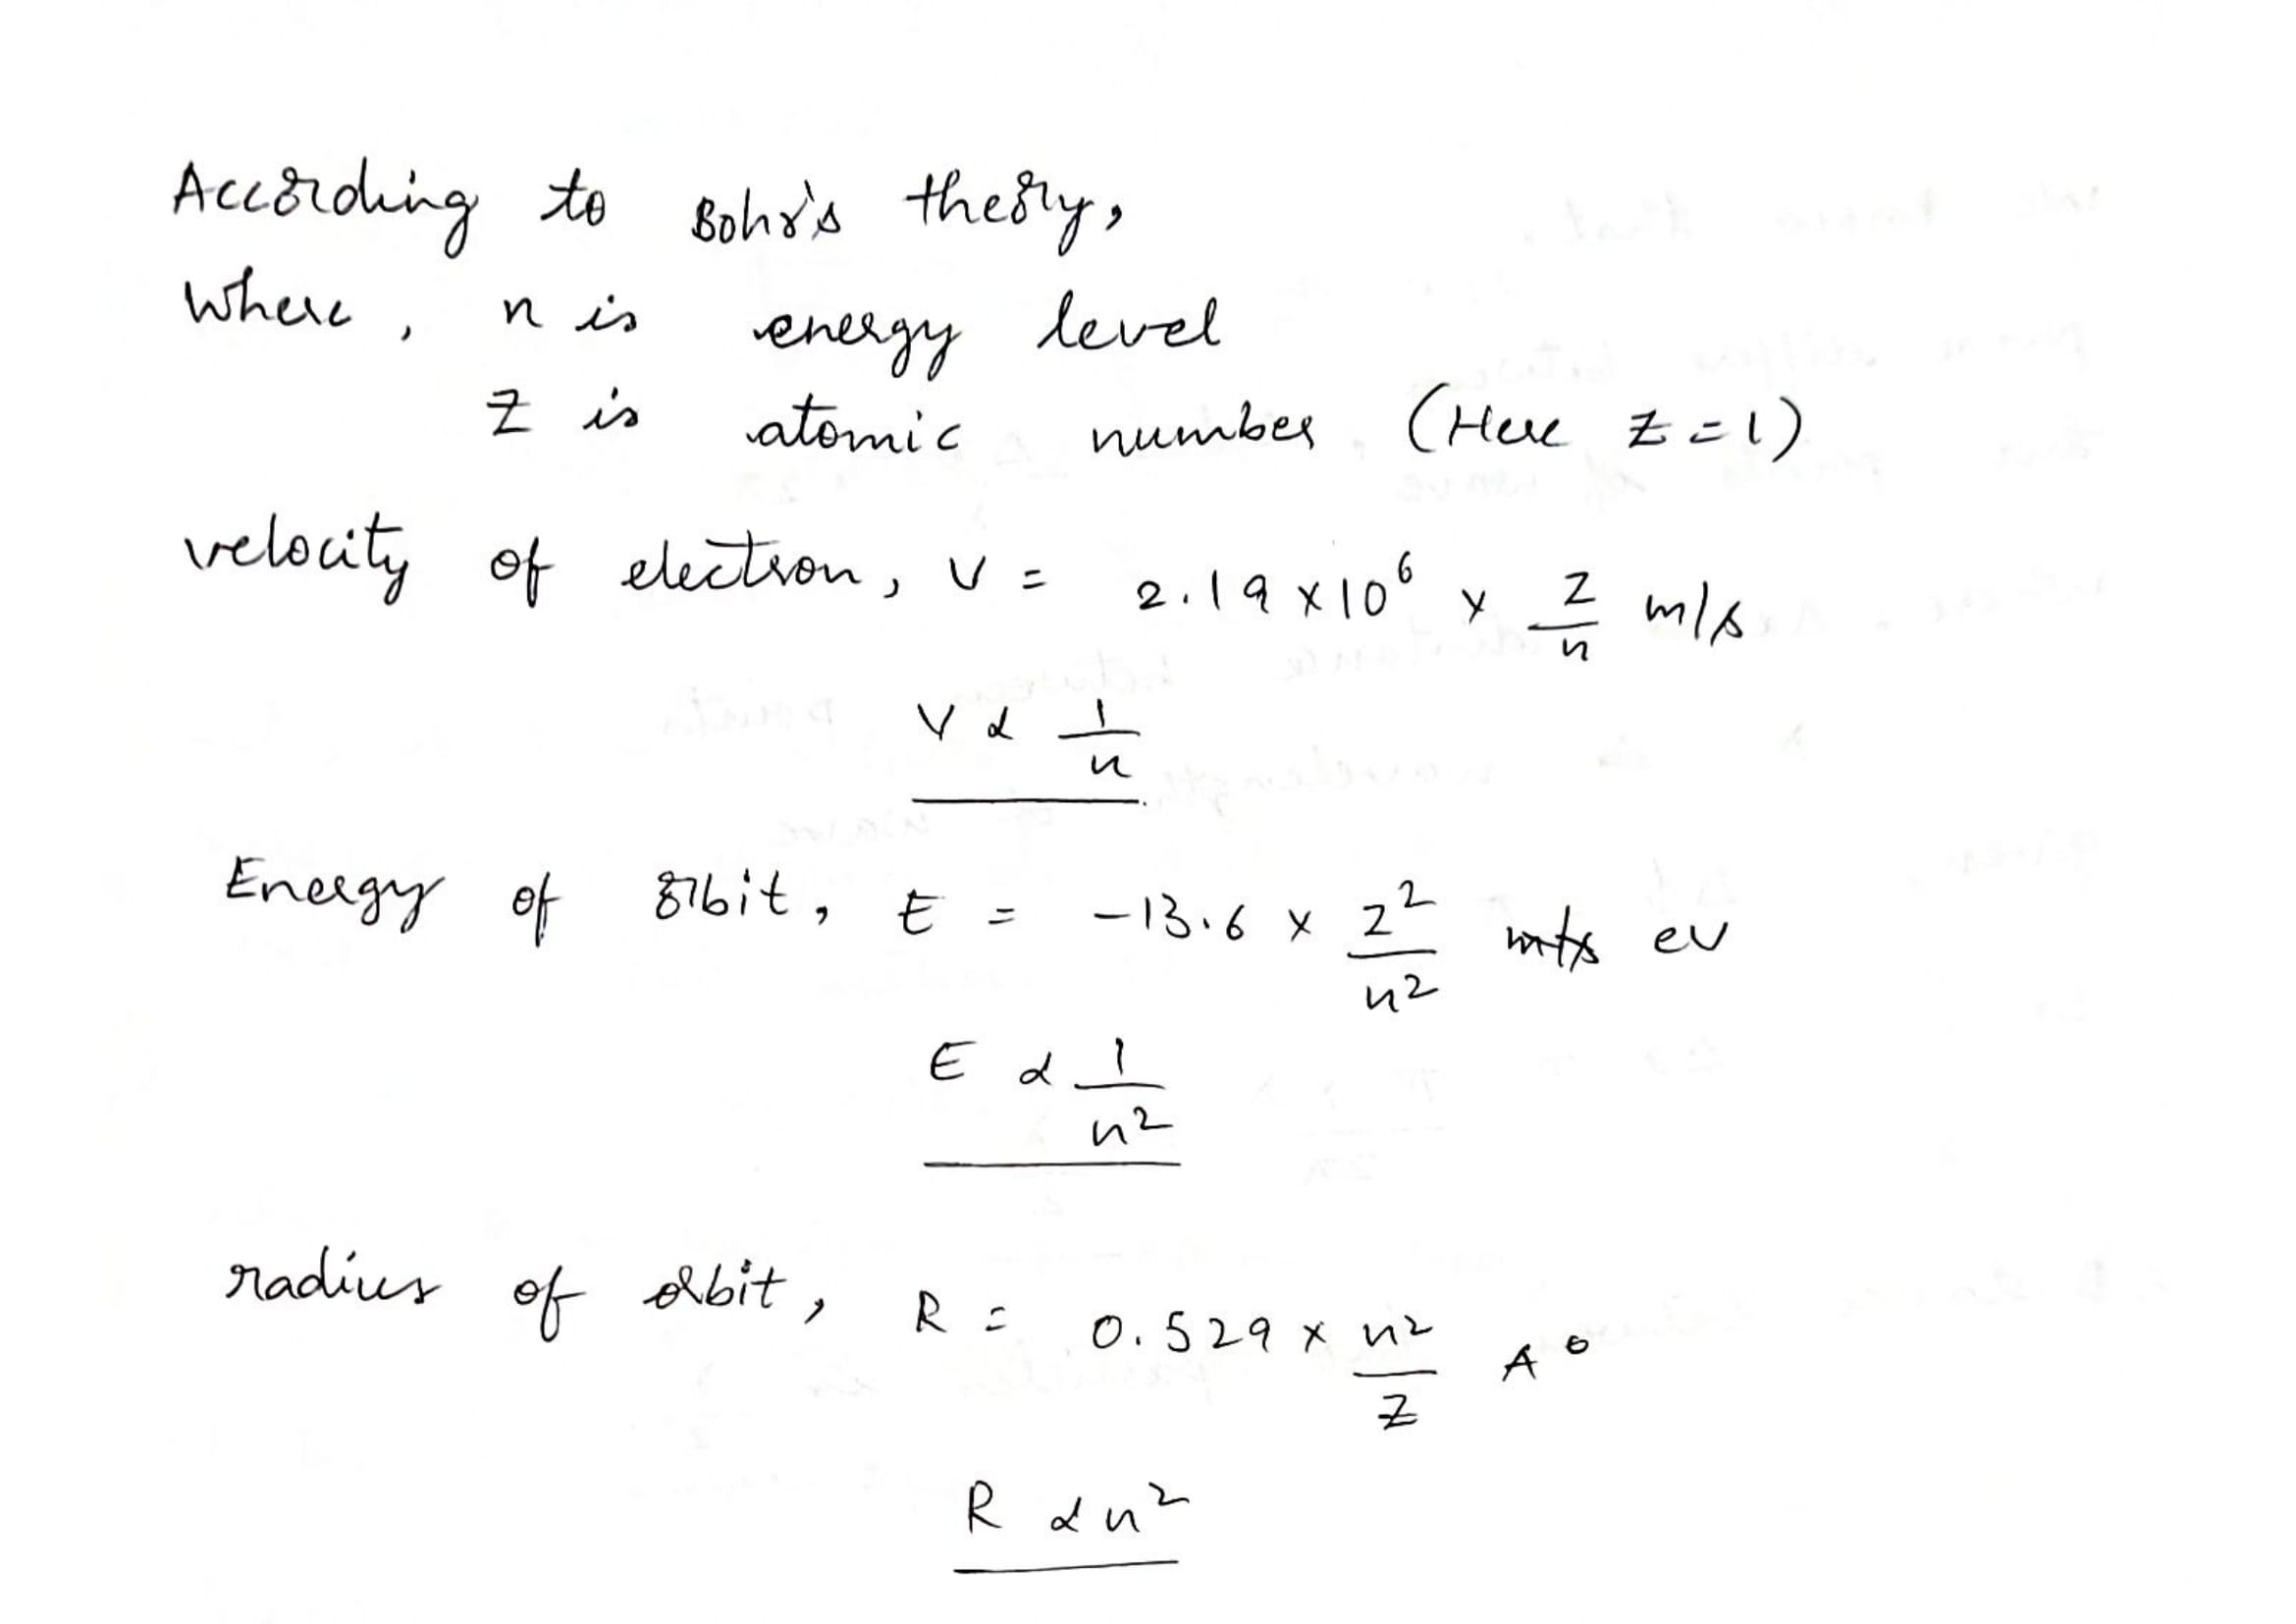 According to Bohr's theory,
Where, n is energy level
Z is atomic number (Here Z = 1)
velocity of electron, V = 2.19 × 10⁶ × Z/n m/s
V α 1/n
Energy of orbit, E = -13.6 × Z²/n² m/s eV
E α 1/n²
radius of orbit, R = 0.529 × n²/Z A°
R α n²